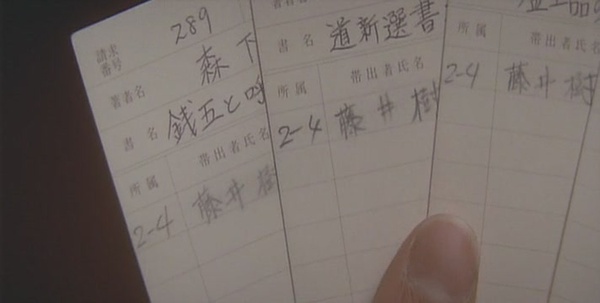 請求番号 289
著者名 森下
書名 銭五と
所属 帯出者氏名
2-4 藤井樹
書名 道新選書
所属 帯出者氏名
2-4 藤井樹
所属 帯出者氏名
2-4 藤井樹